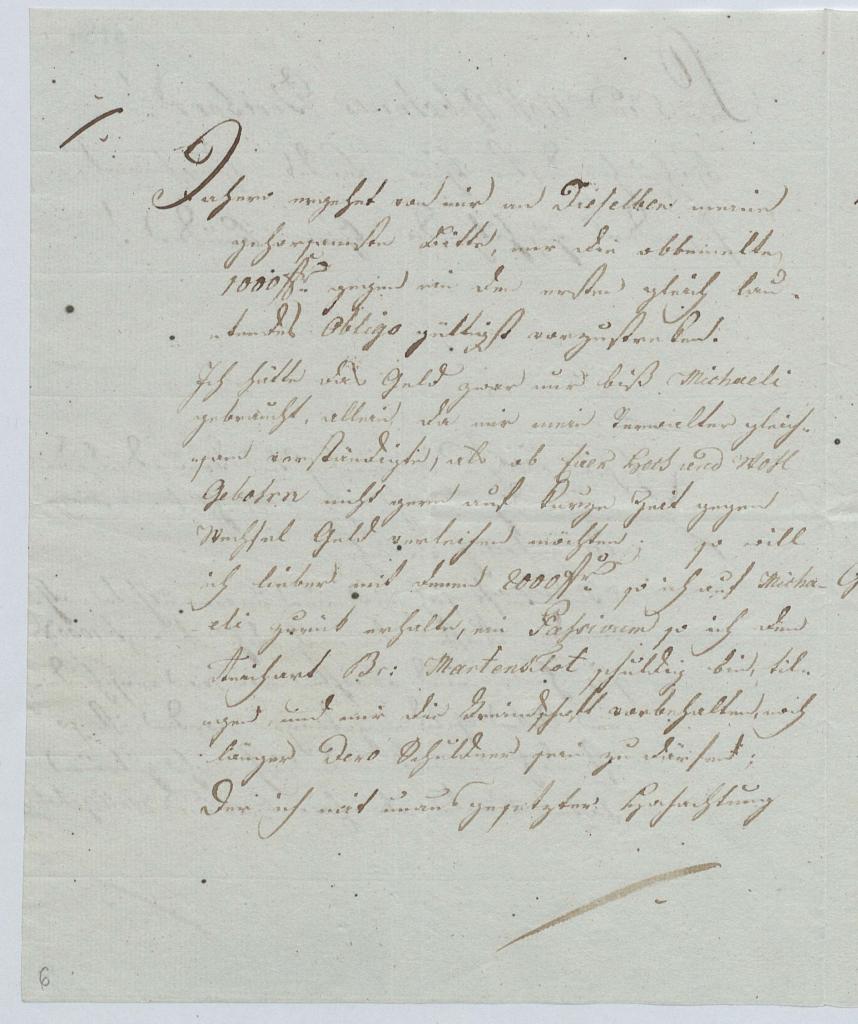 Dahero ergehet von mir an Dieselben meine
gehorsamste Bitte, mir die obbemelte
1000 fr gegen ein dem ersten gleich lau-
tendes Obligo gültigst vorzustreken.
Ich hätte das Geld zwar nur biß Michaeli
gebraucht, allein da mir mein Verwalter gleich-
sam verständigte, als ob Euer Hoch und Wohl
Gebohrn nicht gern auf kurze Zeit gegen
Wechsel Geld verleihen möchten; so will
ich lieber mit denen 2000 fr so ich auf Micha-
eli zurük erhalte, ein Passivum so ich dem
Br: Martenslot schuldig bin, til-
gen, und mir die Freundschaft vorbehalten, noch
länger Dero Schuldner sein zu därfen;
Der ich mit unausgesetzter Hochachtung
6